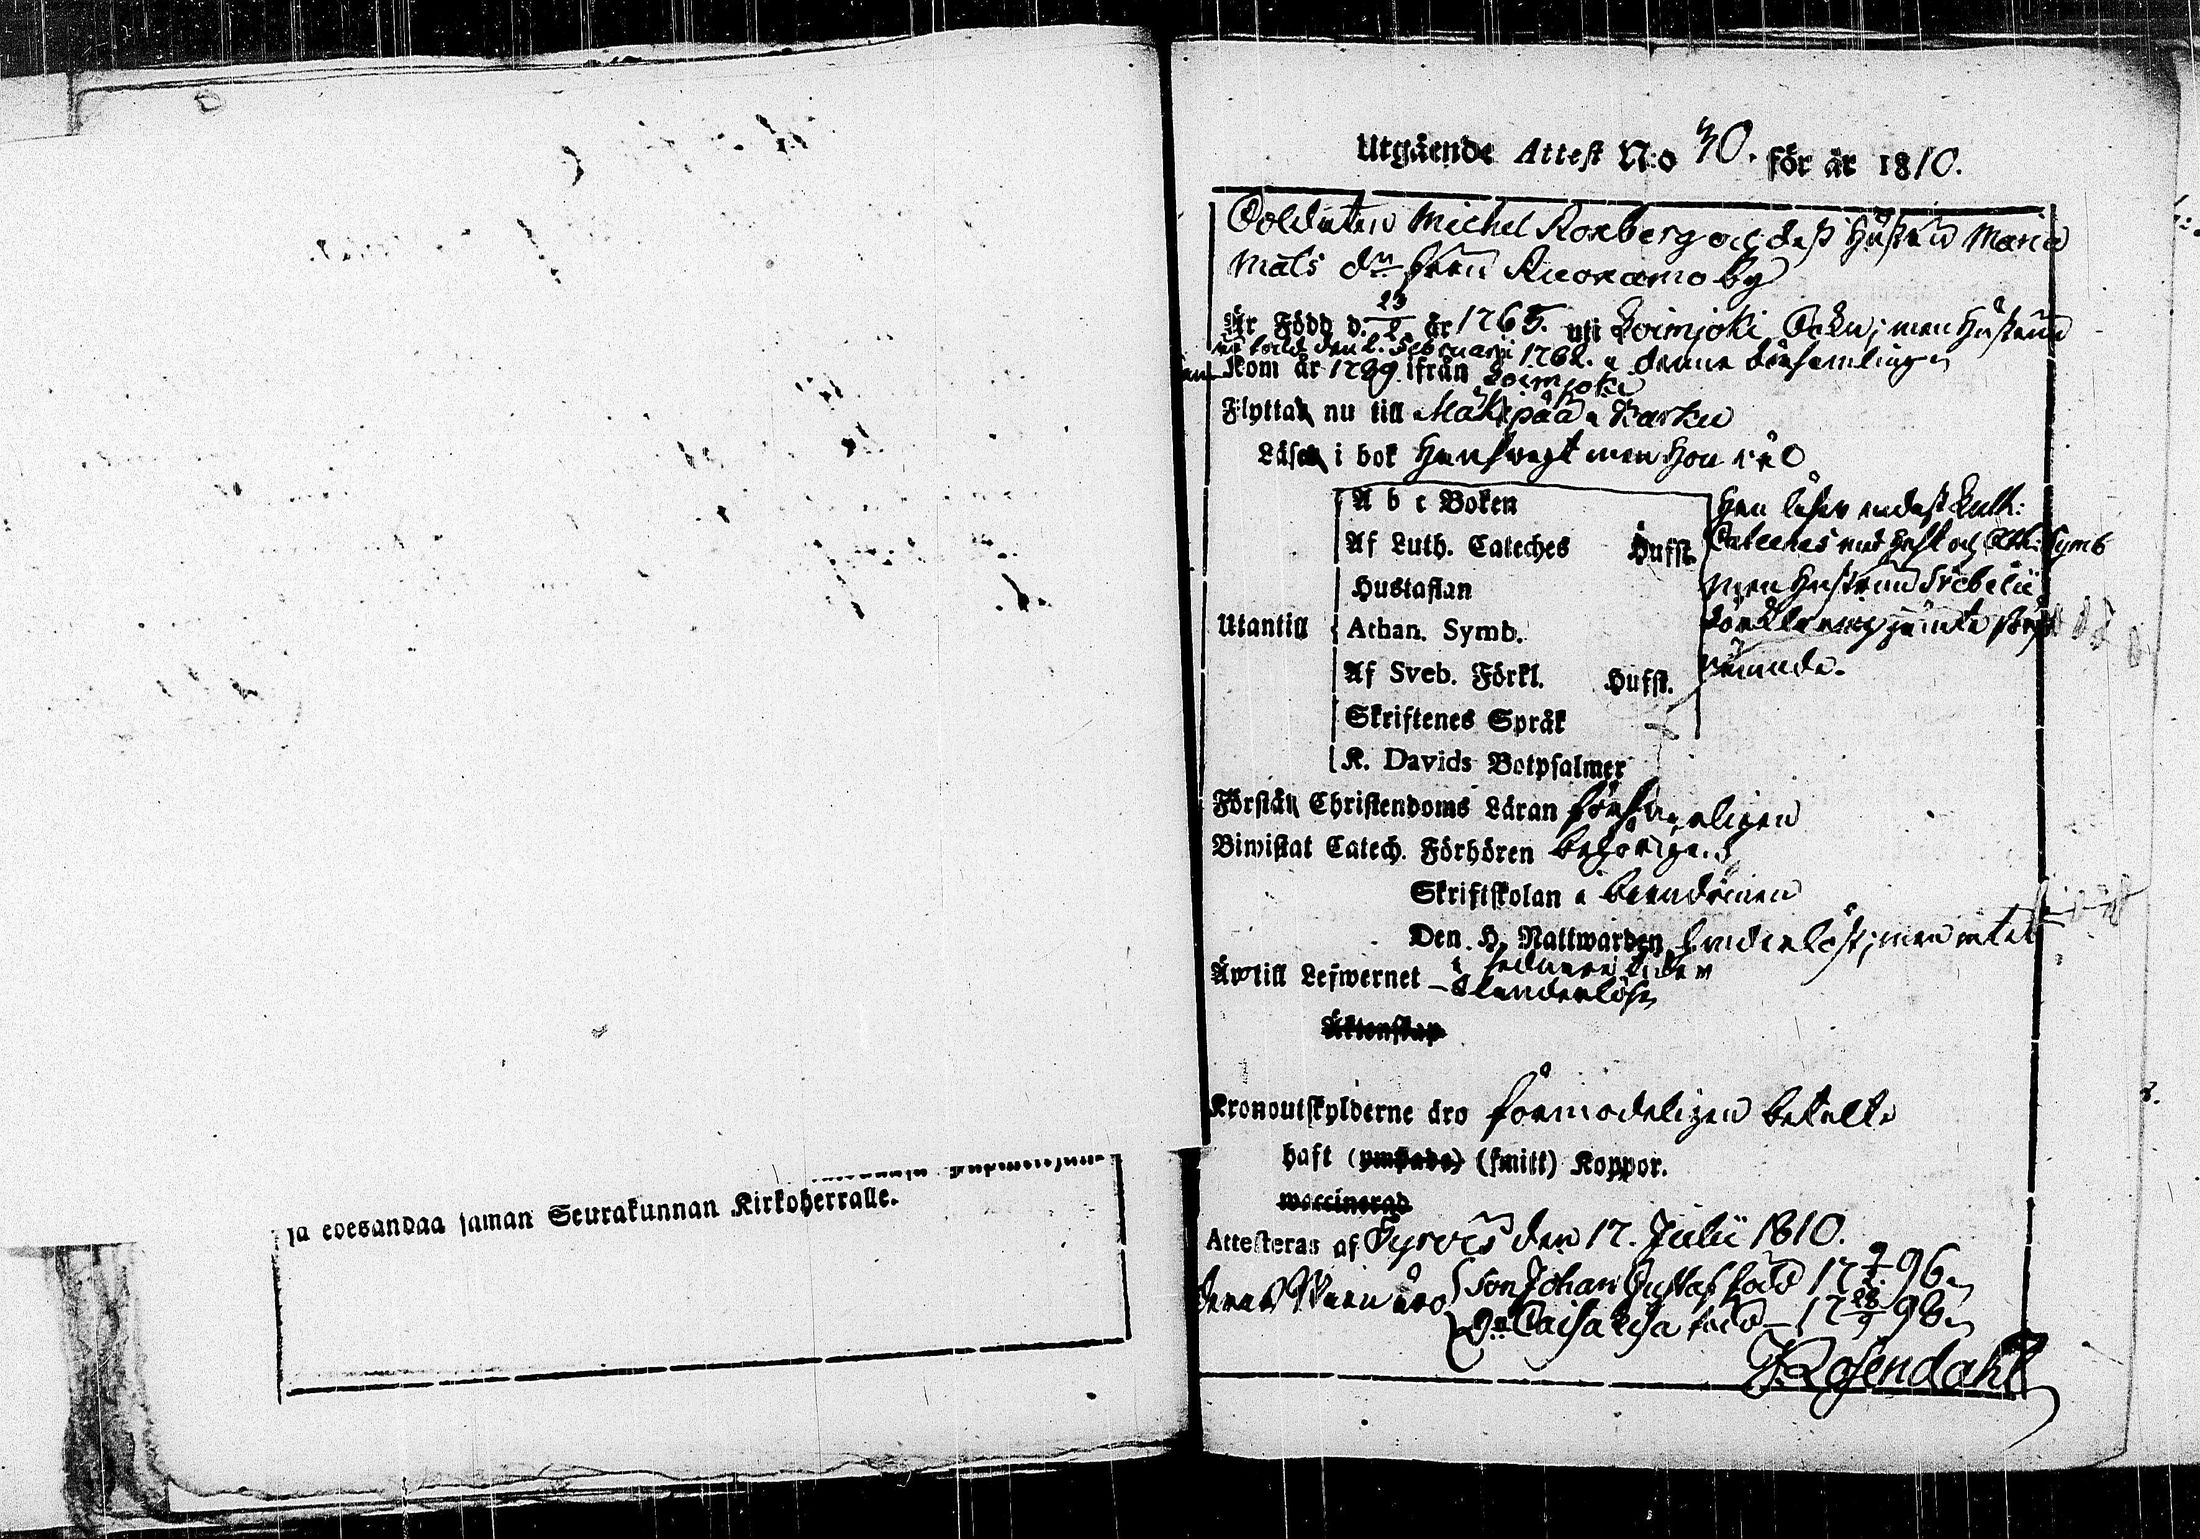 ja edesandaa saman Seurakunnan Kirkoherralle.
Utgående Attest N:o 40. för år 1810.
Soldaten Michel Roxberg och dess Hustru Maria
Mats dr från Ruoxamo by
Är Född d. 23/2 år 1765. uti Loimjoki Sokn; men Hustrun
är född den 2. Februarii 1762. i denne Församlingen
Kom år 1789 ifrån Loimjoki
Flyttar nu till Mäkipää i Karku
Läser i bok Han svagt men Hon väl
A b c Boken
Af Luth. Cateches Hufst.
Hustaflan
Utantill Athan. Symb.
Af Sveb. Förkl. Hufst.
Skriftenes Språk
K. Davids Botpsalmer
Han läser endast Luth:
Cateches med Hust och Ath: Symb
men Hustrun Svebelii
förklaring jämte
Förstår Christendoms Läran försvarligen
Biwistat Catech. Förhören behörigen
Skriftskolan i barndomen
Den H. Nattwarden hinderlöst; men intet
i sednare tider
Är till Lefwernet – Klanderlöse
Äktenskap
Kronoutskylderne äro förmodeligen betalte
haft (ympade) (smitt) Koppor.
waccinerad
Attesteras af Tyrvis den 17. Julii 1810.
deras Barn äro Son Johan Gustaf född 17 9/2 96
Dr Caisa Lisa född – 17 28/9 98
J. Rosendahl